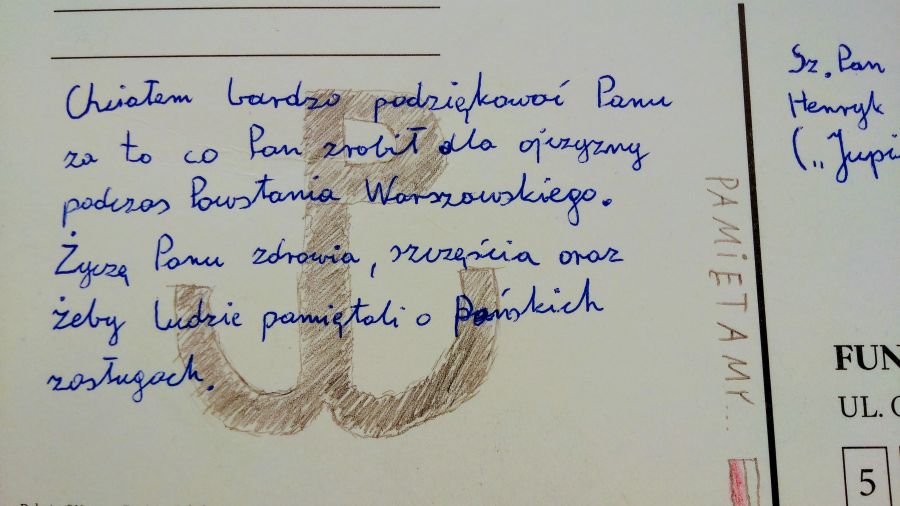 Chciałem bardzo podziękować Panu
za to co Pan zrobił dla ojczyzny
podczas Powstania Warszawskiego.
Życzę Panu zdrowia, szczęścia oraz
żeby ludzie pamiętali o Pańskich
zasługach.
PAMIĘTAMY...
Sz. Pan
Henryk
("Jupi
FUN
UL.
5